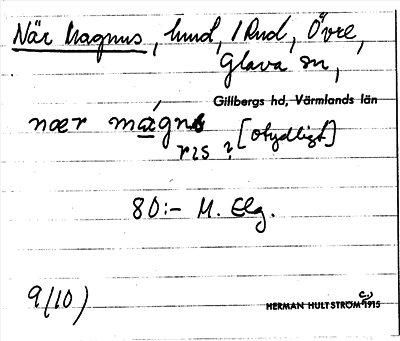 När Magnus, hund, / Rud, Övre,
Glava sn,
Gillbergs hd, Värmlands län
nær mágn
ris ? [otydligt]
80:- M. Elg.
9/10)
HERMAN HULTSTRÖM 1915